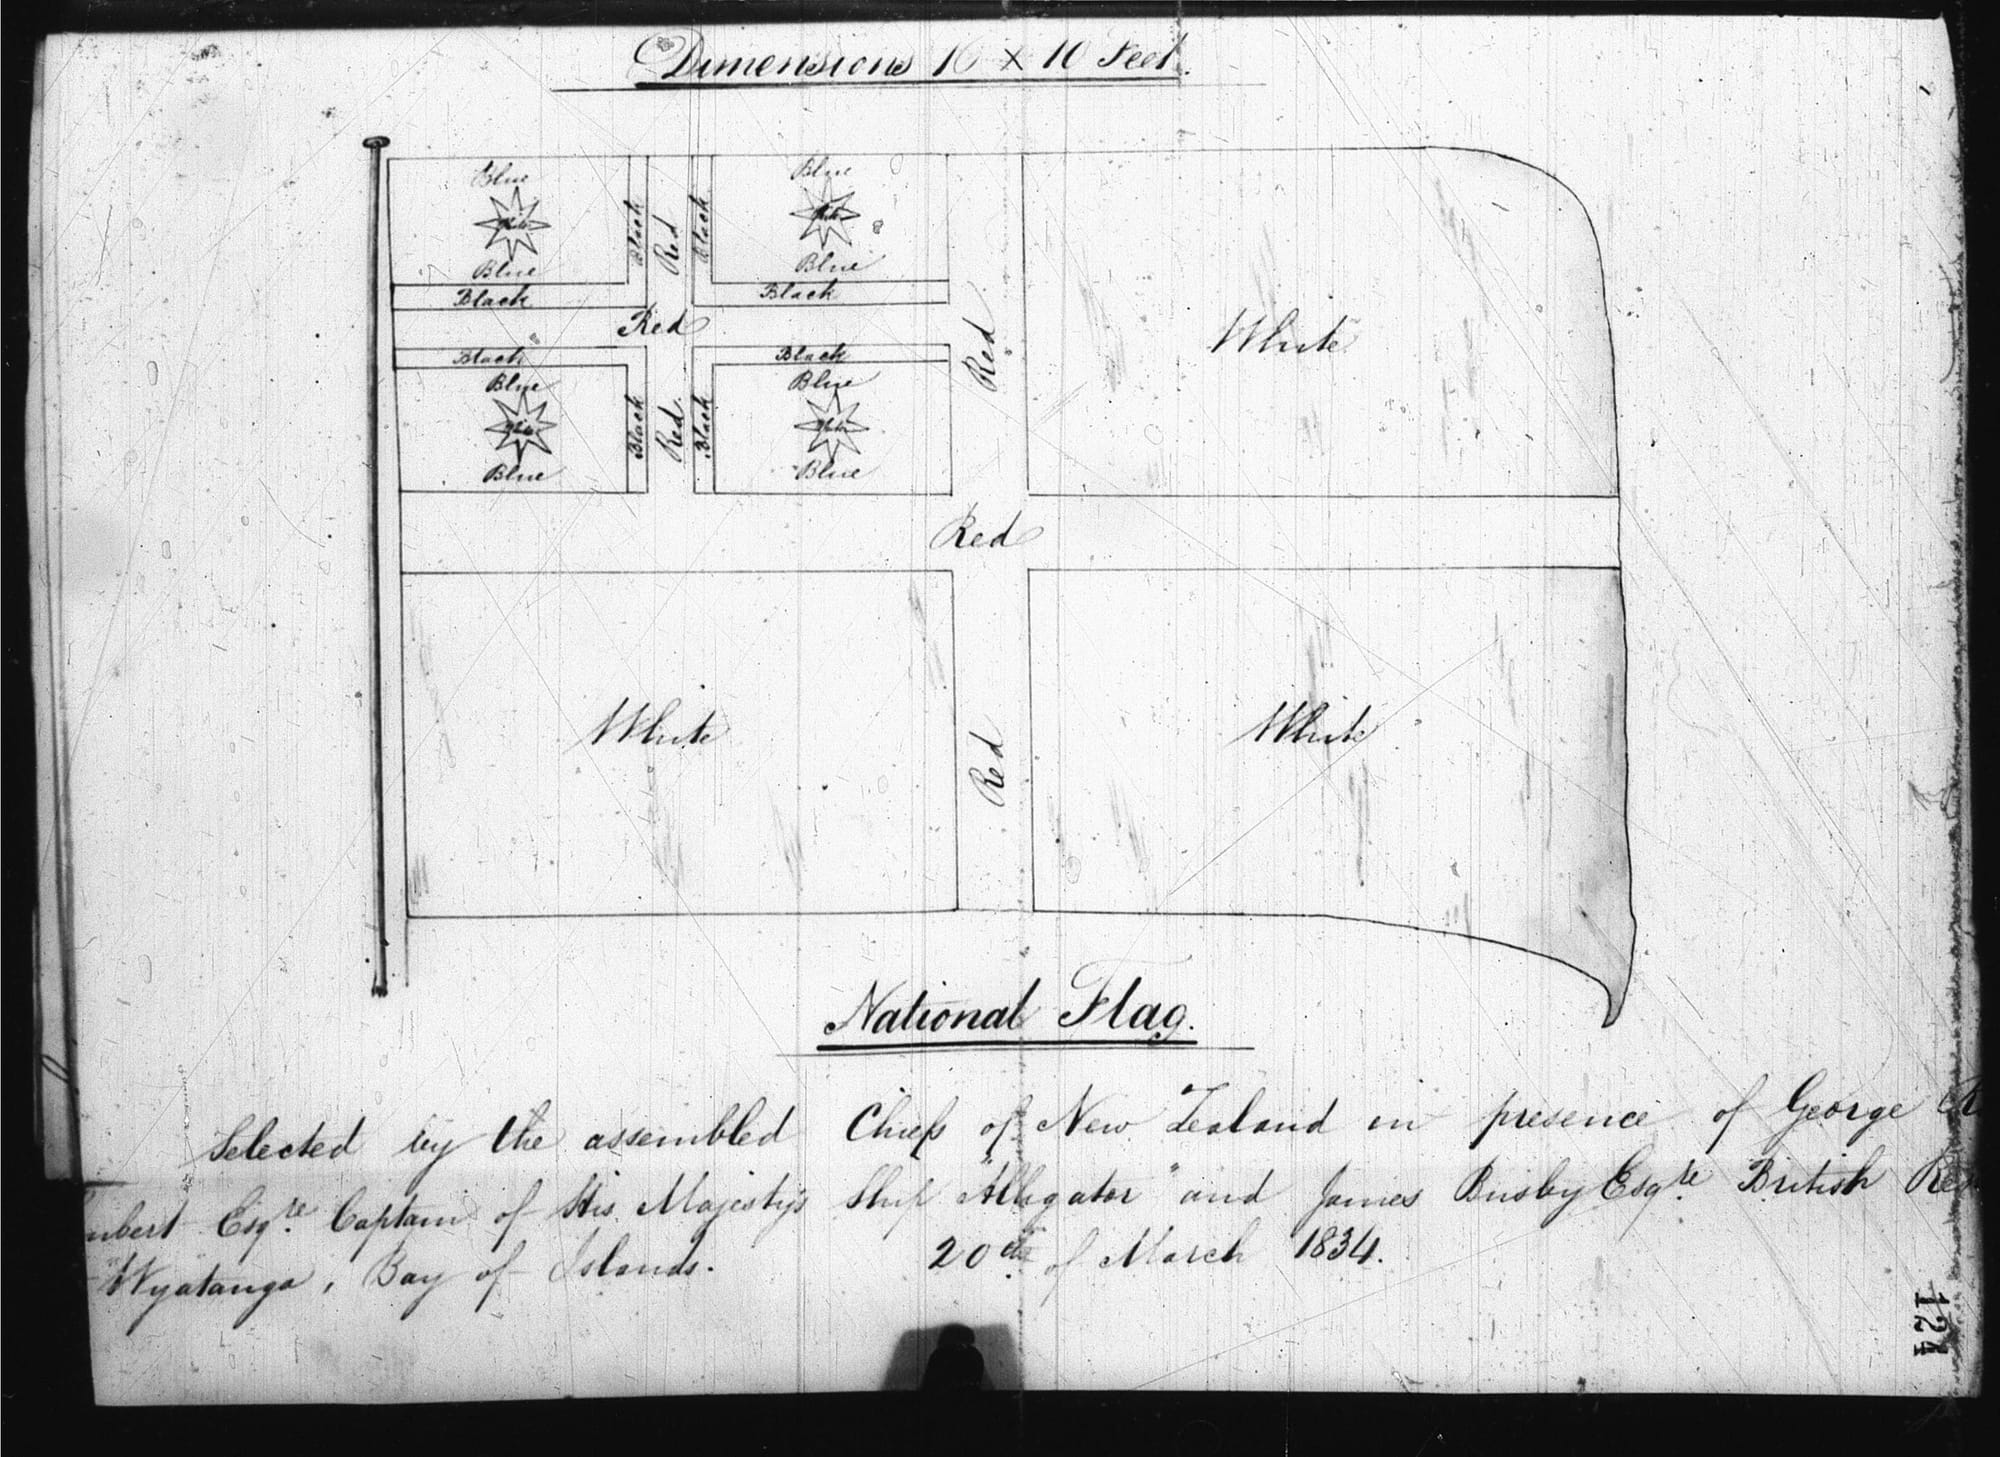 Dimensions 16 x 10 Feet.
Blue Blue
White White
Black Red Black
Blue Blue
Black Black
Red
Black Black
Blue Blue
White White
Black Red Black
Blue Blue
Red
White
Red
White White
Red
National Flag.
Selected by the assembled Chiefs of New Zealand in presence of George R
mbert Esqre. Captain of His Majesty's Ship "Alligator" and James Busby Esqre British Res
Wyatanga, Bay of Islands. 20th of March 1834.
124